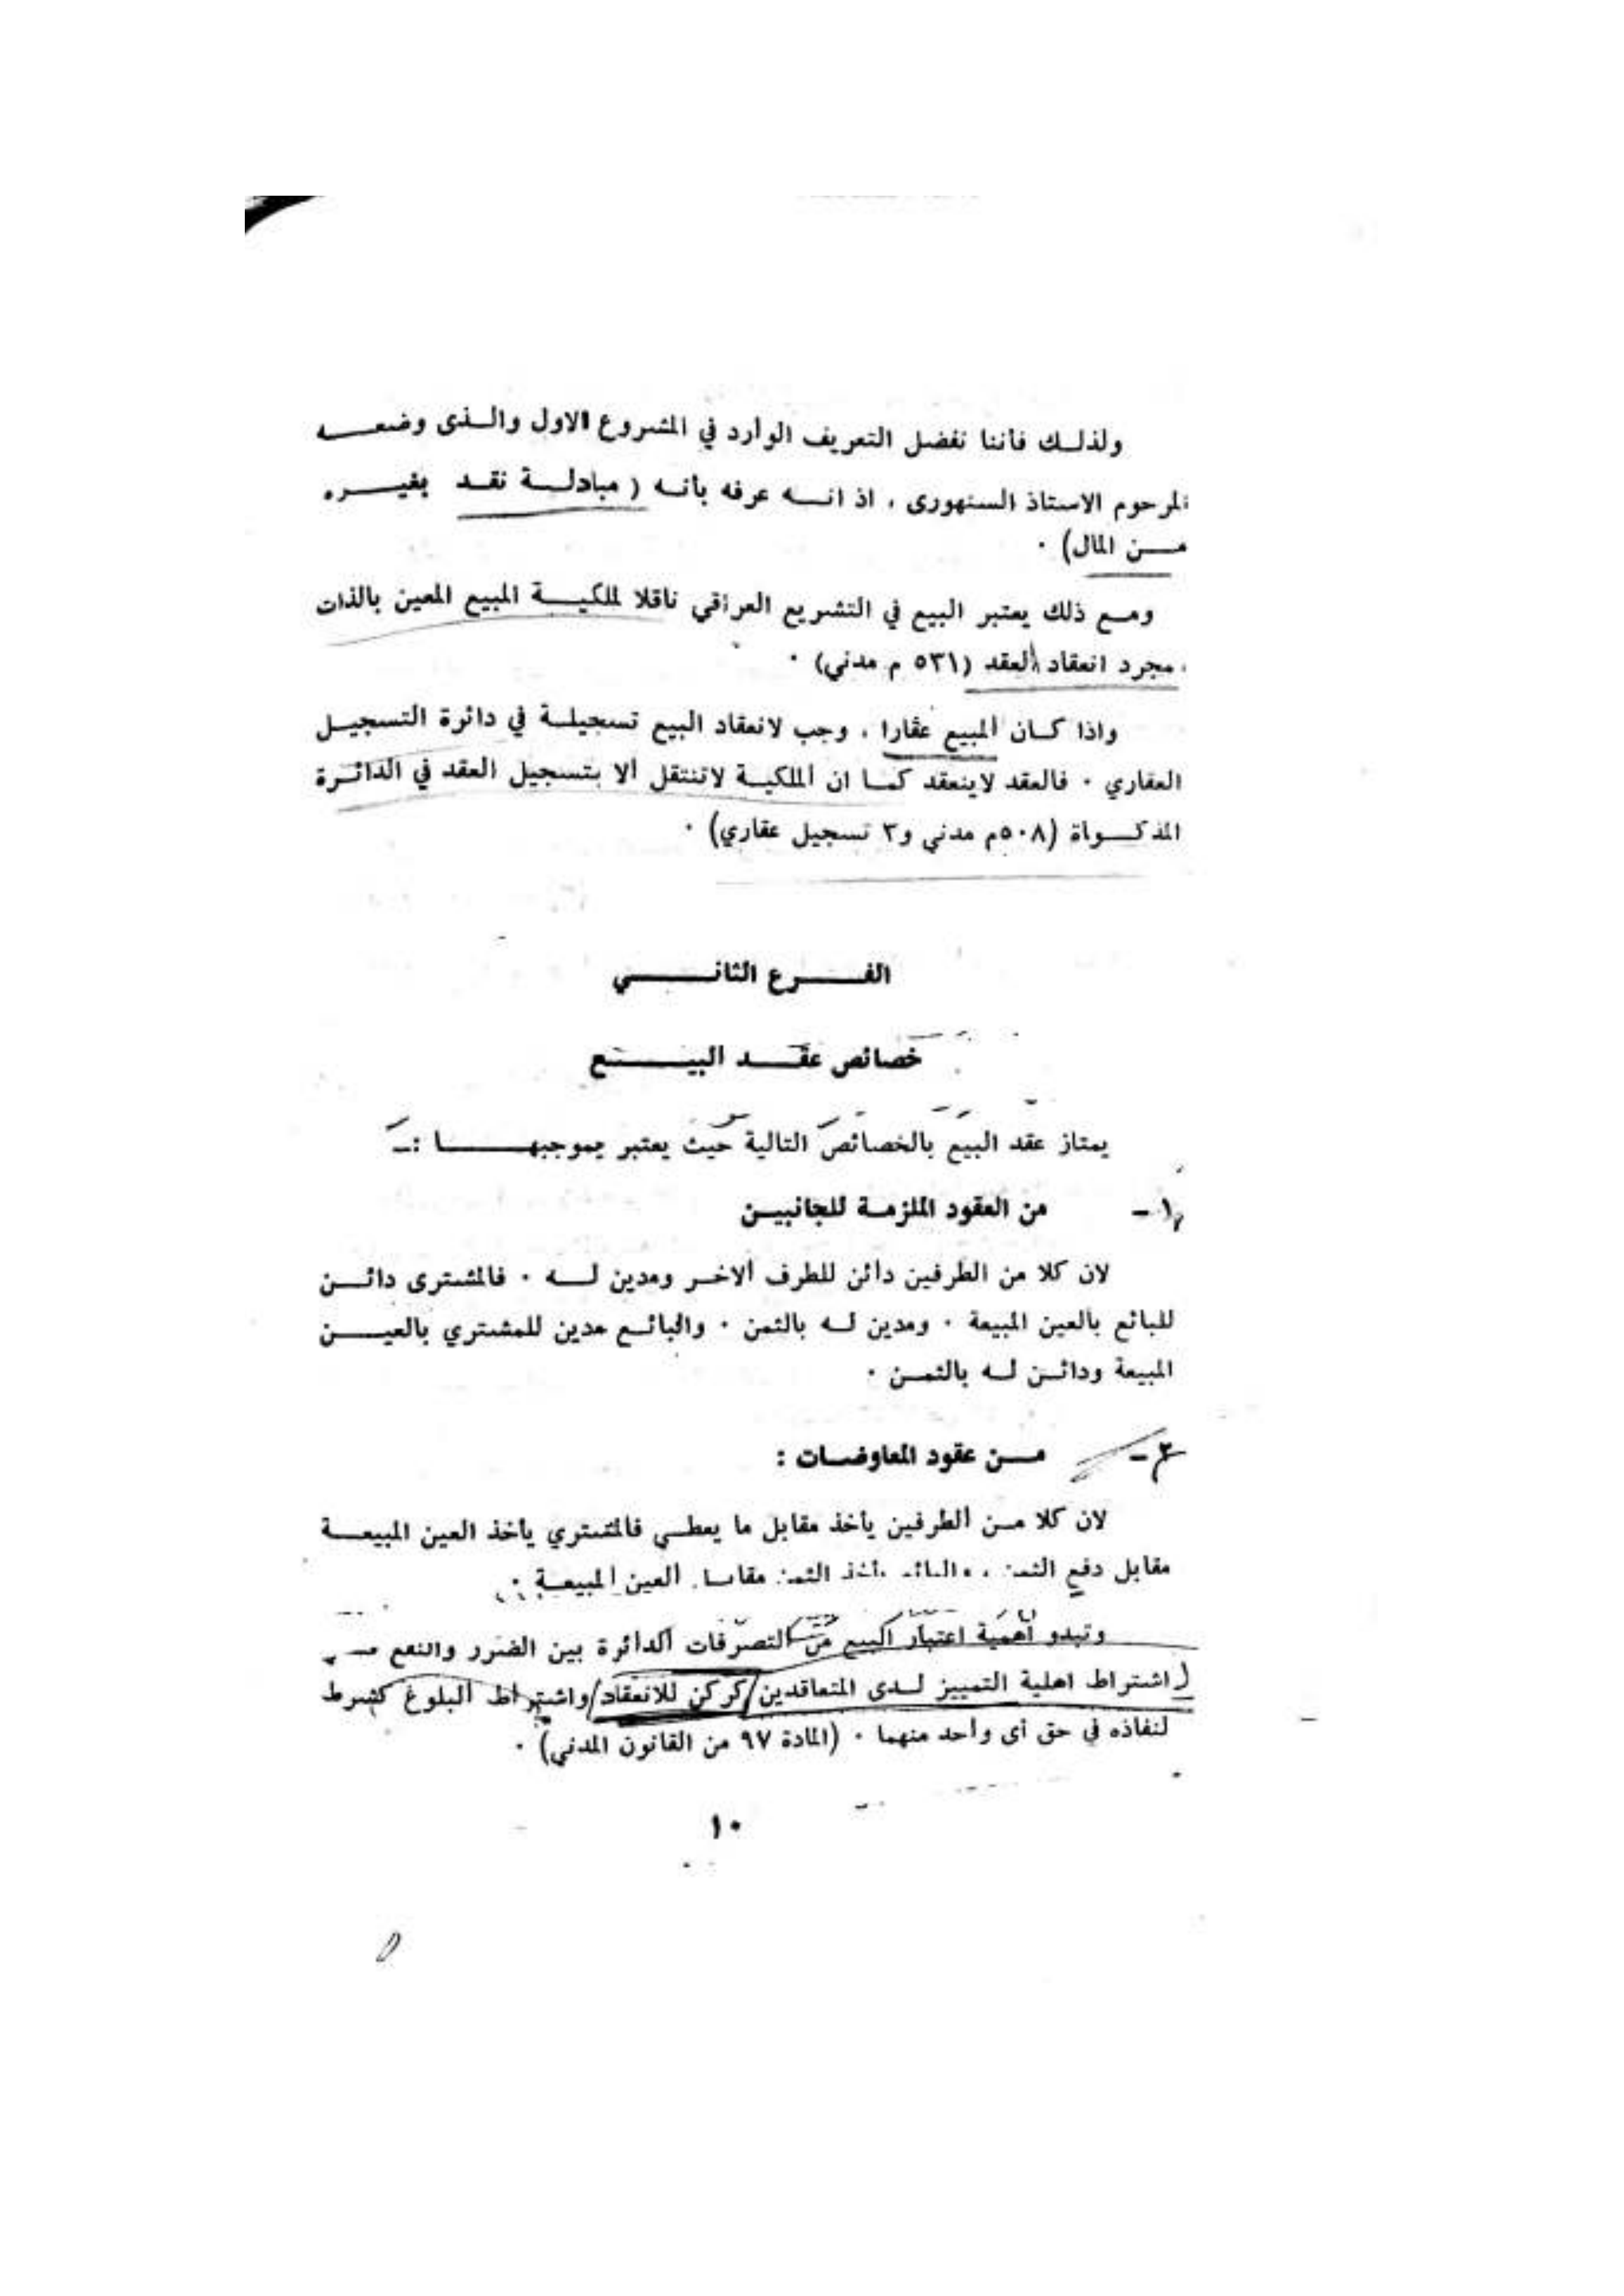 ولذلك فأننا نفضل التعريف الوارد في المشروع الاول والذى وضعه
المرحوم الاستاذ السنهورى ، اذ انه عرفه بأنه ( مبادلة نقد بغيره
من المال) ٠
ومع ذلك يعتبر البيع في التشريع العراقي ناقلا لملكية المبيع المعين بالذات
بمجرد انعقاد العقد (٥٣١ م مدني) ٠
واذا كان المبيع عقارا ، وجب لانعقاد البيع تسجيلة في دائرة التسجيل
العقاري ٠ فالعقد لاينعقد كما ان الملكية لاتنتقل ألا بتسجيل العقد في الدائرة
المذكواة (٥٠٨م مدني و٣ تسجيل عقاري) ٠
الفرع الثاني
خصائص عقد البيع
يمتاز عقد البيع بالخصائص التالية حيث يعتبر بموجبها :ـ
١ – من العقود الملزمة للجانبين
لان كلا من الطرفين دائن للطرف ألاخر ومدين له ٠ فالمشترى دائن
للبائع بالعين المبيعة ٠ ومدين له بالثمن ٠ والبائع مدين للمشتري بالعين
المبيعة ودائن له بالثمن ٠
– من عقود المعاوضات :
لان كلا من الطرفين يأخذ مقابل ما يعطي فالمشتري يأخذ العين المبيعة
مقابل دفع الثمن ، والبائع يأخذ الثمن مقابل العين المبيعة ٠
وتبدو أهمية اعتبار البيع من التصرفات الدائرة بين الضرر والنفع
اشتراط اهلية التمييز لدى المتعاقدين كركن للانعقاد واشتراط البلوغ كشرط
لنفاذه في حق أى واحد منهما ٠ (المادة ٩٧ من القانون المدني) ٠
١٠